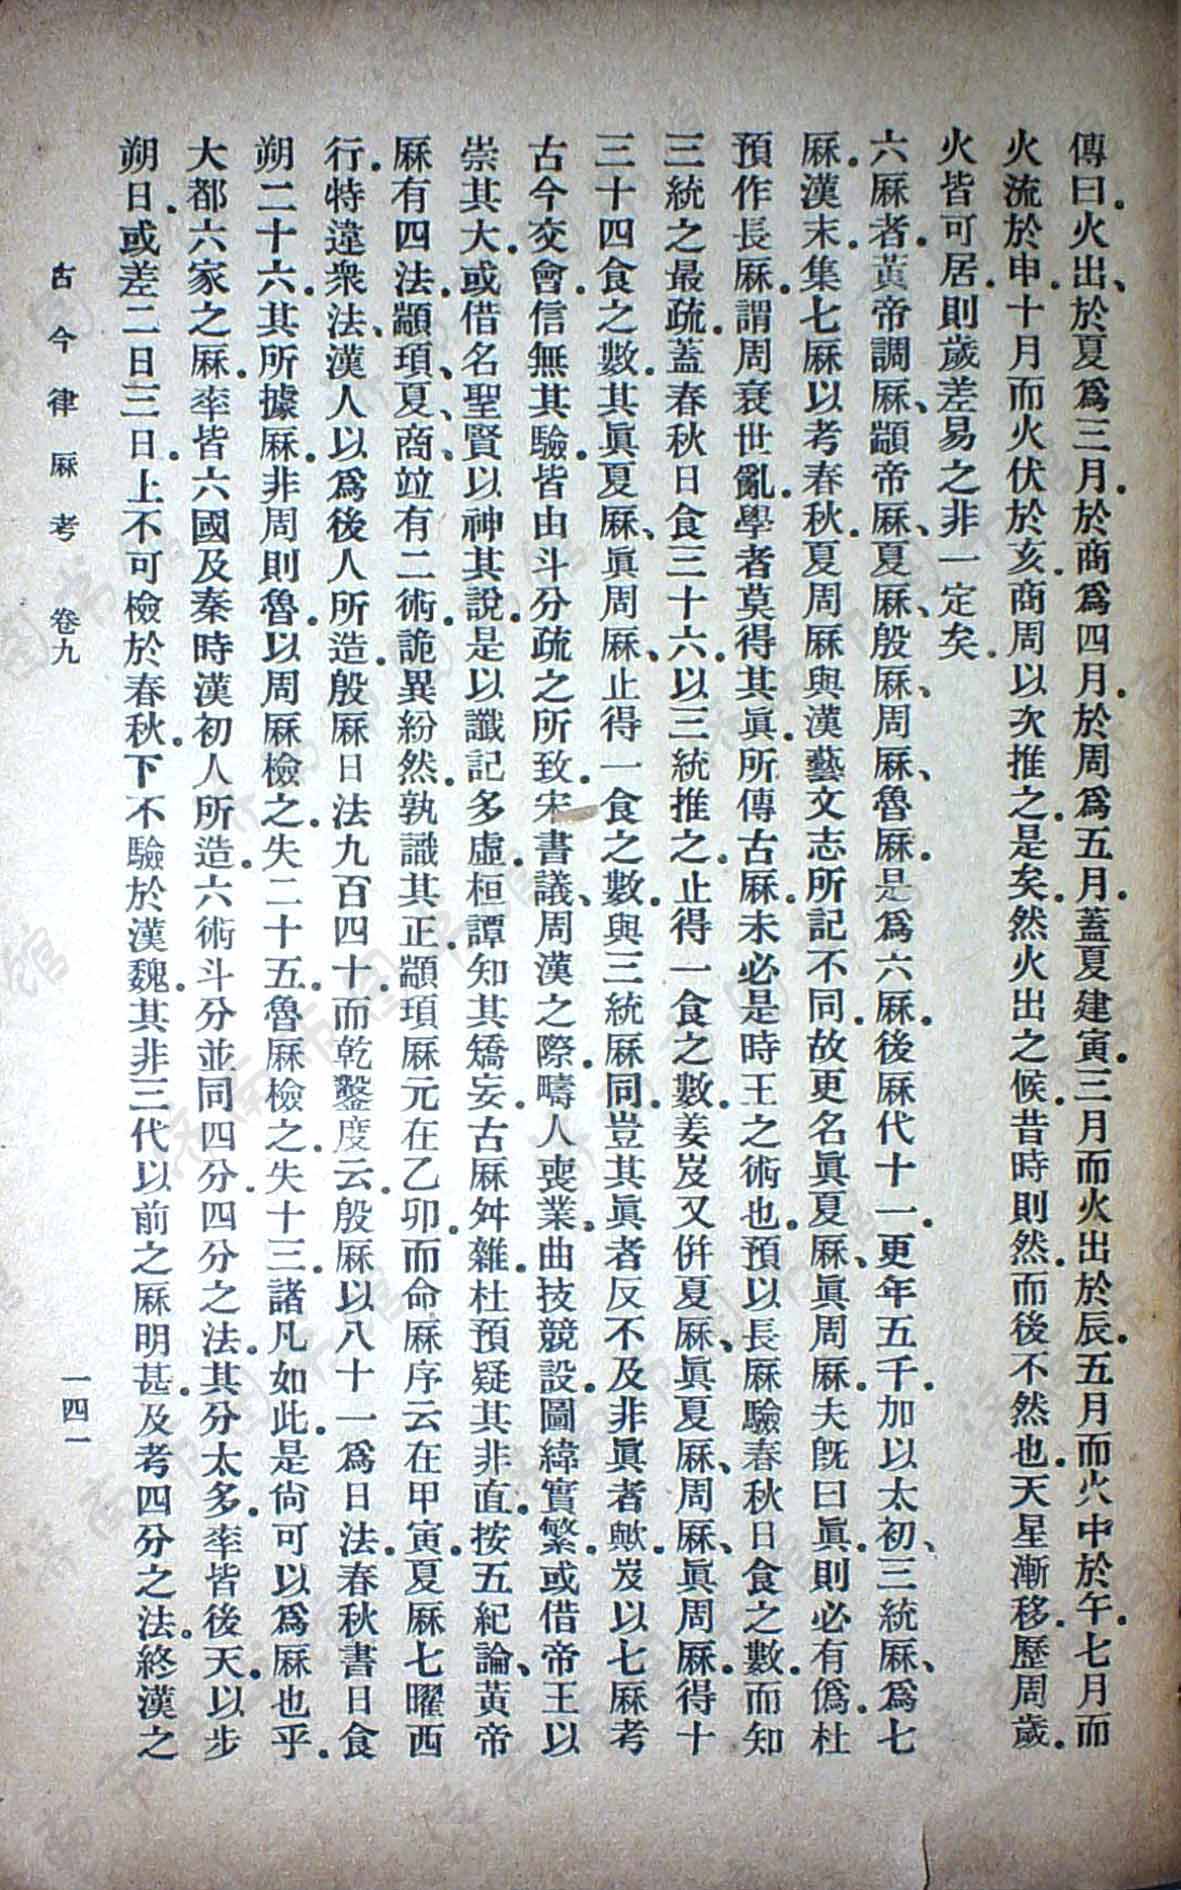 傳曰。火出、於夏爲三月。於商爲四月。於周爲五月。蓋夏建寅。三月而火出於辰。五月而火中於午。七月而
火流於申。十月而火伏於亥。商周以次推之。是矣。然火出之候。昔時則然。而後不然也。天星漸移。歷周歲。
火皆可居。則歲差易之非一定矣。
六厤者。黃帝調厤、顓帝厤、夏厤、殷厤、周厤、魯厤。是爲六厤。後厤代十一。更年五千。加以太初、三統厤、爲七
厤。漢末。集七厤以考春秋。夏周厤與漢藝文志所記不同。故更名眞夏厤、眞周厤。夫旣曰眞。則必有僞。杜
預作長厤。謂周衰世亂。學者莫得其眞。所傳古厤。未必是時王之術也。預以長厤驗春秋日食之數。而知
三統之最疏。蓋春秋日食三十六。以三統推之。止得一食之數。姜岌又倂夏厤、眞夏厤、周厤、眞周厤。得十
三十四食之數。其眞夏厤、眞周厤、止得一食之數。與三統厤同。豈其眞者反不及非眞者歟。岌以七厤考
古今交會。信無其驗。皆由斗分疏之所致。宋書議、周漢之際。疇人喪業。曲技競設。圖緯實繁。或借帝王以
崇其大。或借名聖賢以神其說。是以讖記多虛。桓譚知其矯妄。古厤舛雜。杜預疑其非直。按五紀論、黃帝
厤有四法。顓頊、夏、商、竝有二術。詭異紛然。孰識其正。顓頊厤元在乙卯。而命厤序云在甲寅。夏厤七曜西
行。特違衆法、漢人以爲後人所造。殷厤日法九百四十。而乾鑿度云。殷厤以八十一爲日法。春秋書日食
朔二十六。其所據厤。非周則魯。以周厤檢之。失二十五。魯厤檢之。失十三。諸凡如此。是尙可以爲厤也乎。
大都六家之厤。率皆六國及秦時漢初人所造。六術斗分並同四分。四分之法。其分太多。率皆後天。以步
朔日。或差二日三日。上不可檢於春秋。下不驗於漢魏。其非三代以前之厤明甚。及考四分之法。終漢之
古今律厤考　卷九　一四一